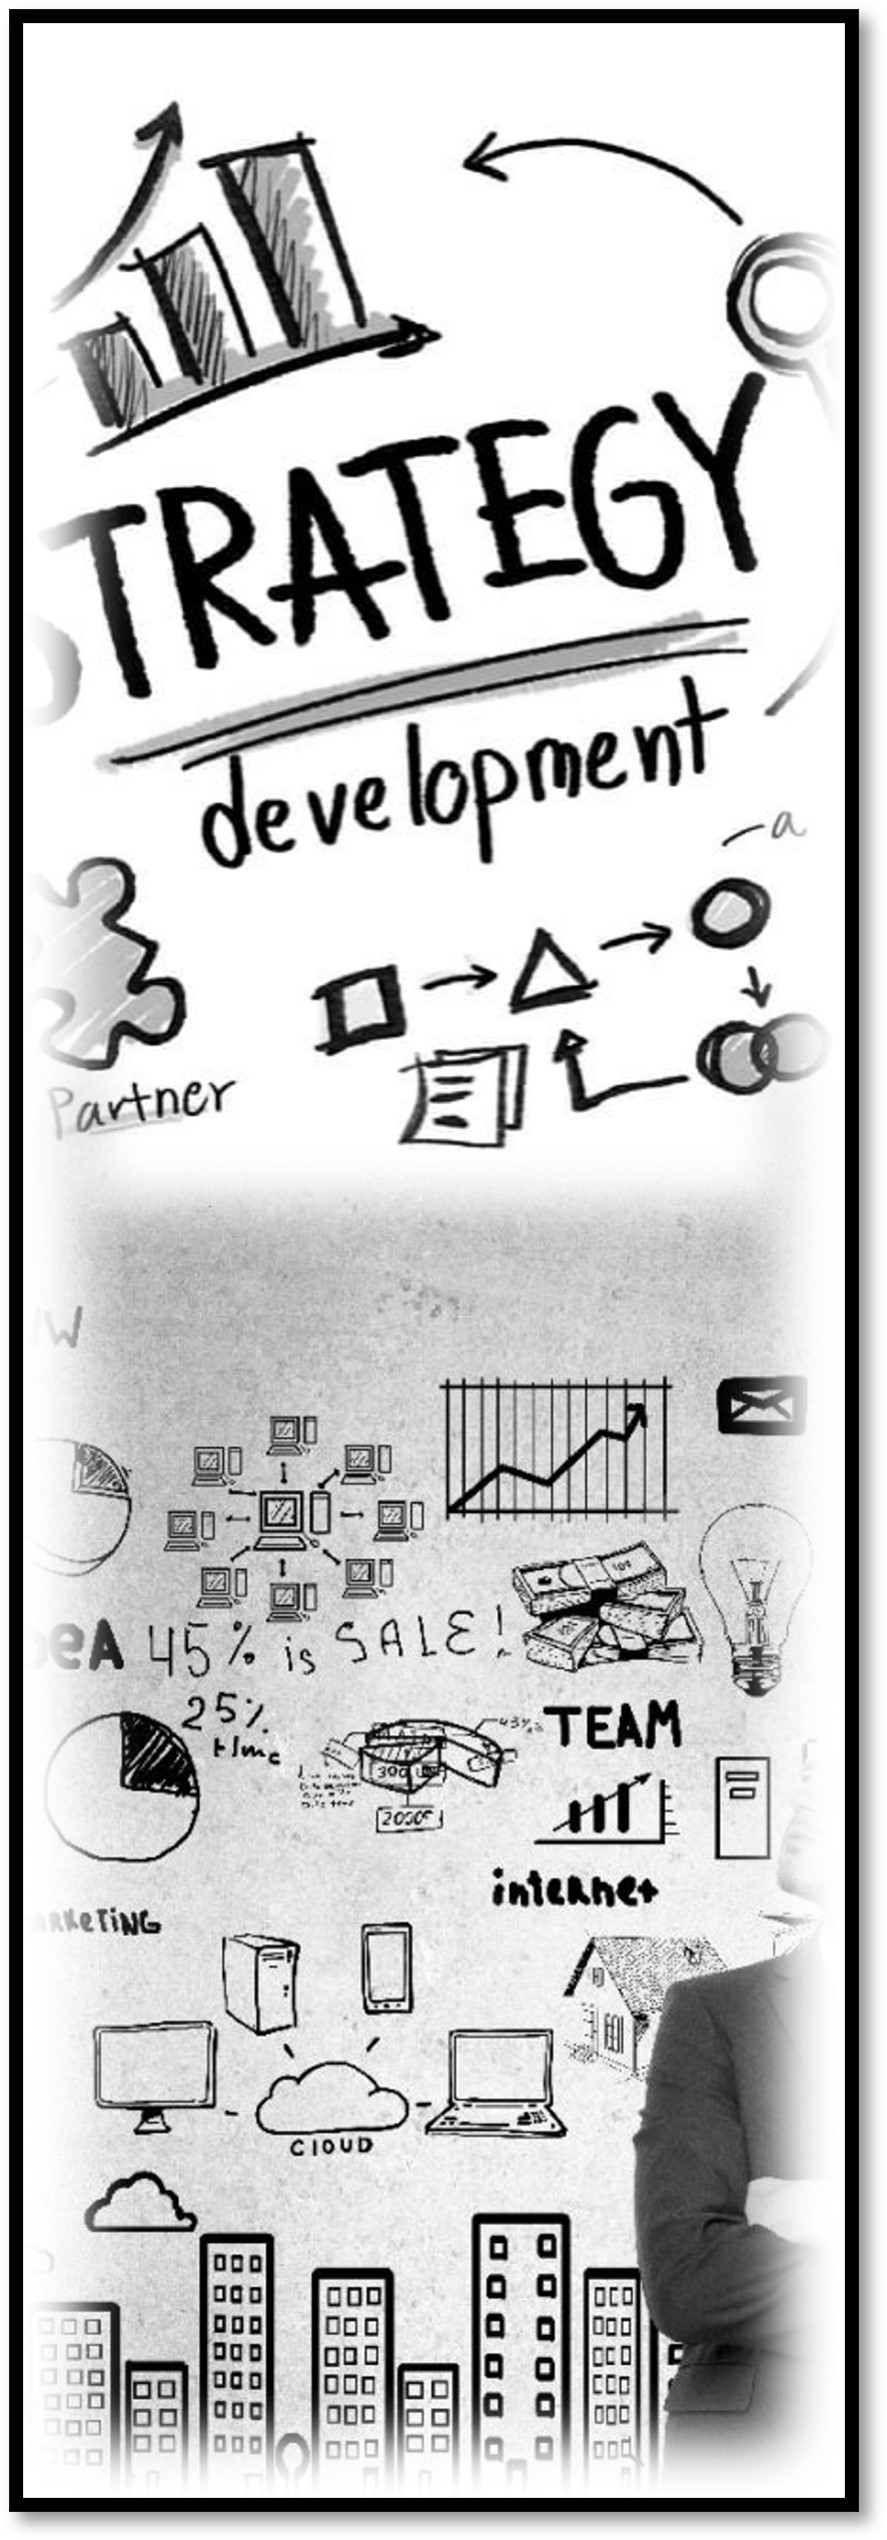 TRATEGY
development
a
Partner
W
eA 45% is SALE!
25%
time
43%
300
2000€
TEAM
internet
ARKeTiNG
CLOUD